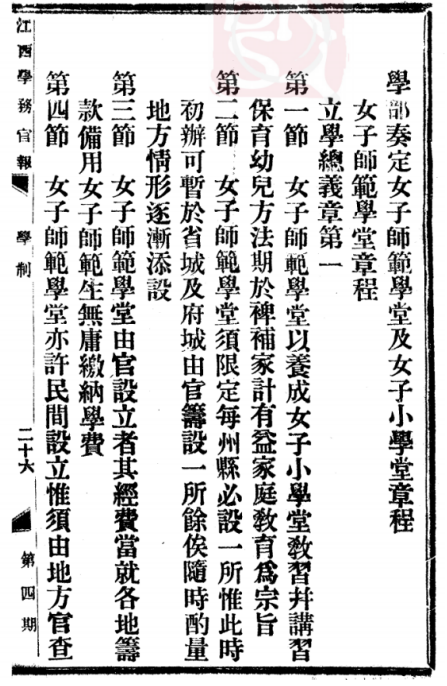 學部奏定女子師範學堂及女子小學堂章程
女子師範學堂章程
立學總義章第一
第一節　女子師範學堂以養成女子小學堂教習幷講習
保育幼兒方法期於裨補家計有益家庭教育爲宗旨
第二節　女子師範學堂須限定每州縣必設一所惟此時
初辦可暫於省城及府城由官籌設一所餘俟隨時酌量
地方情形逐漸添設
第三節　女子師範學堂由官設立者其經費當就各地籌
款備用女子師範生無庸繳納學費
第四節　女子師範學堂亦許民間設立惟須由地方官查
江西學務官報　學制　二十六　第四期